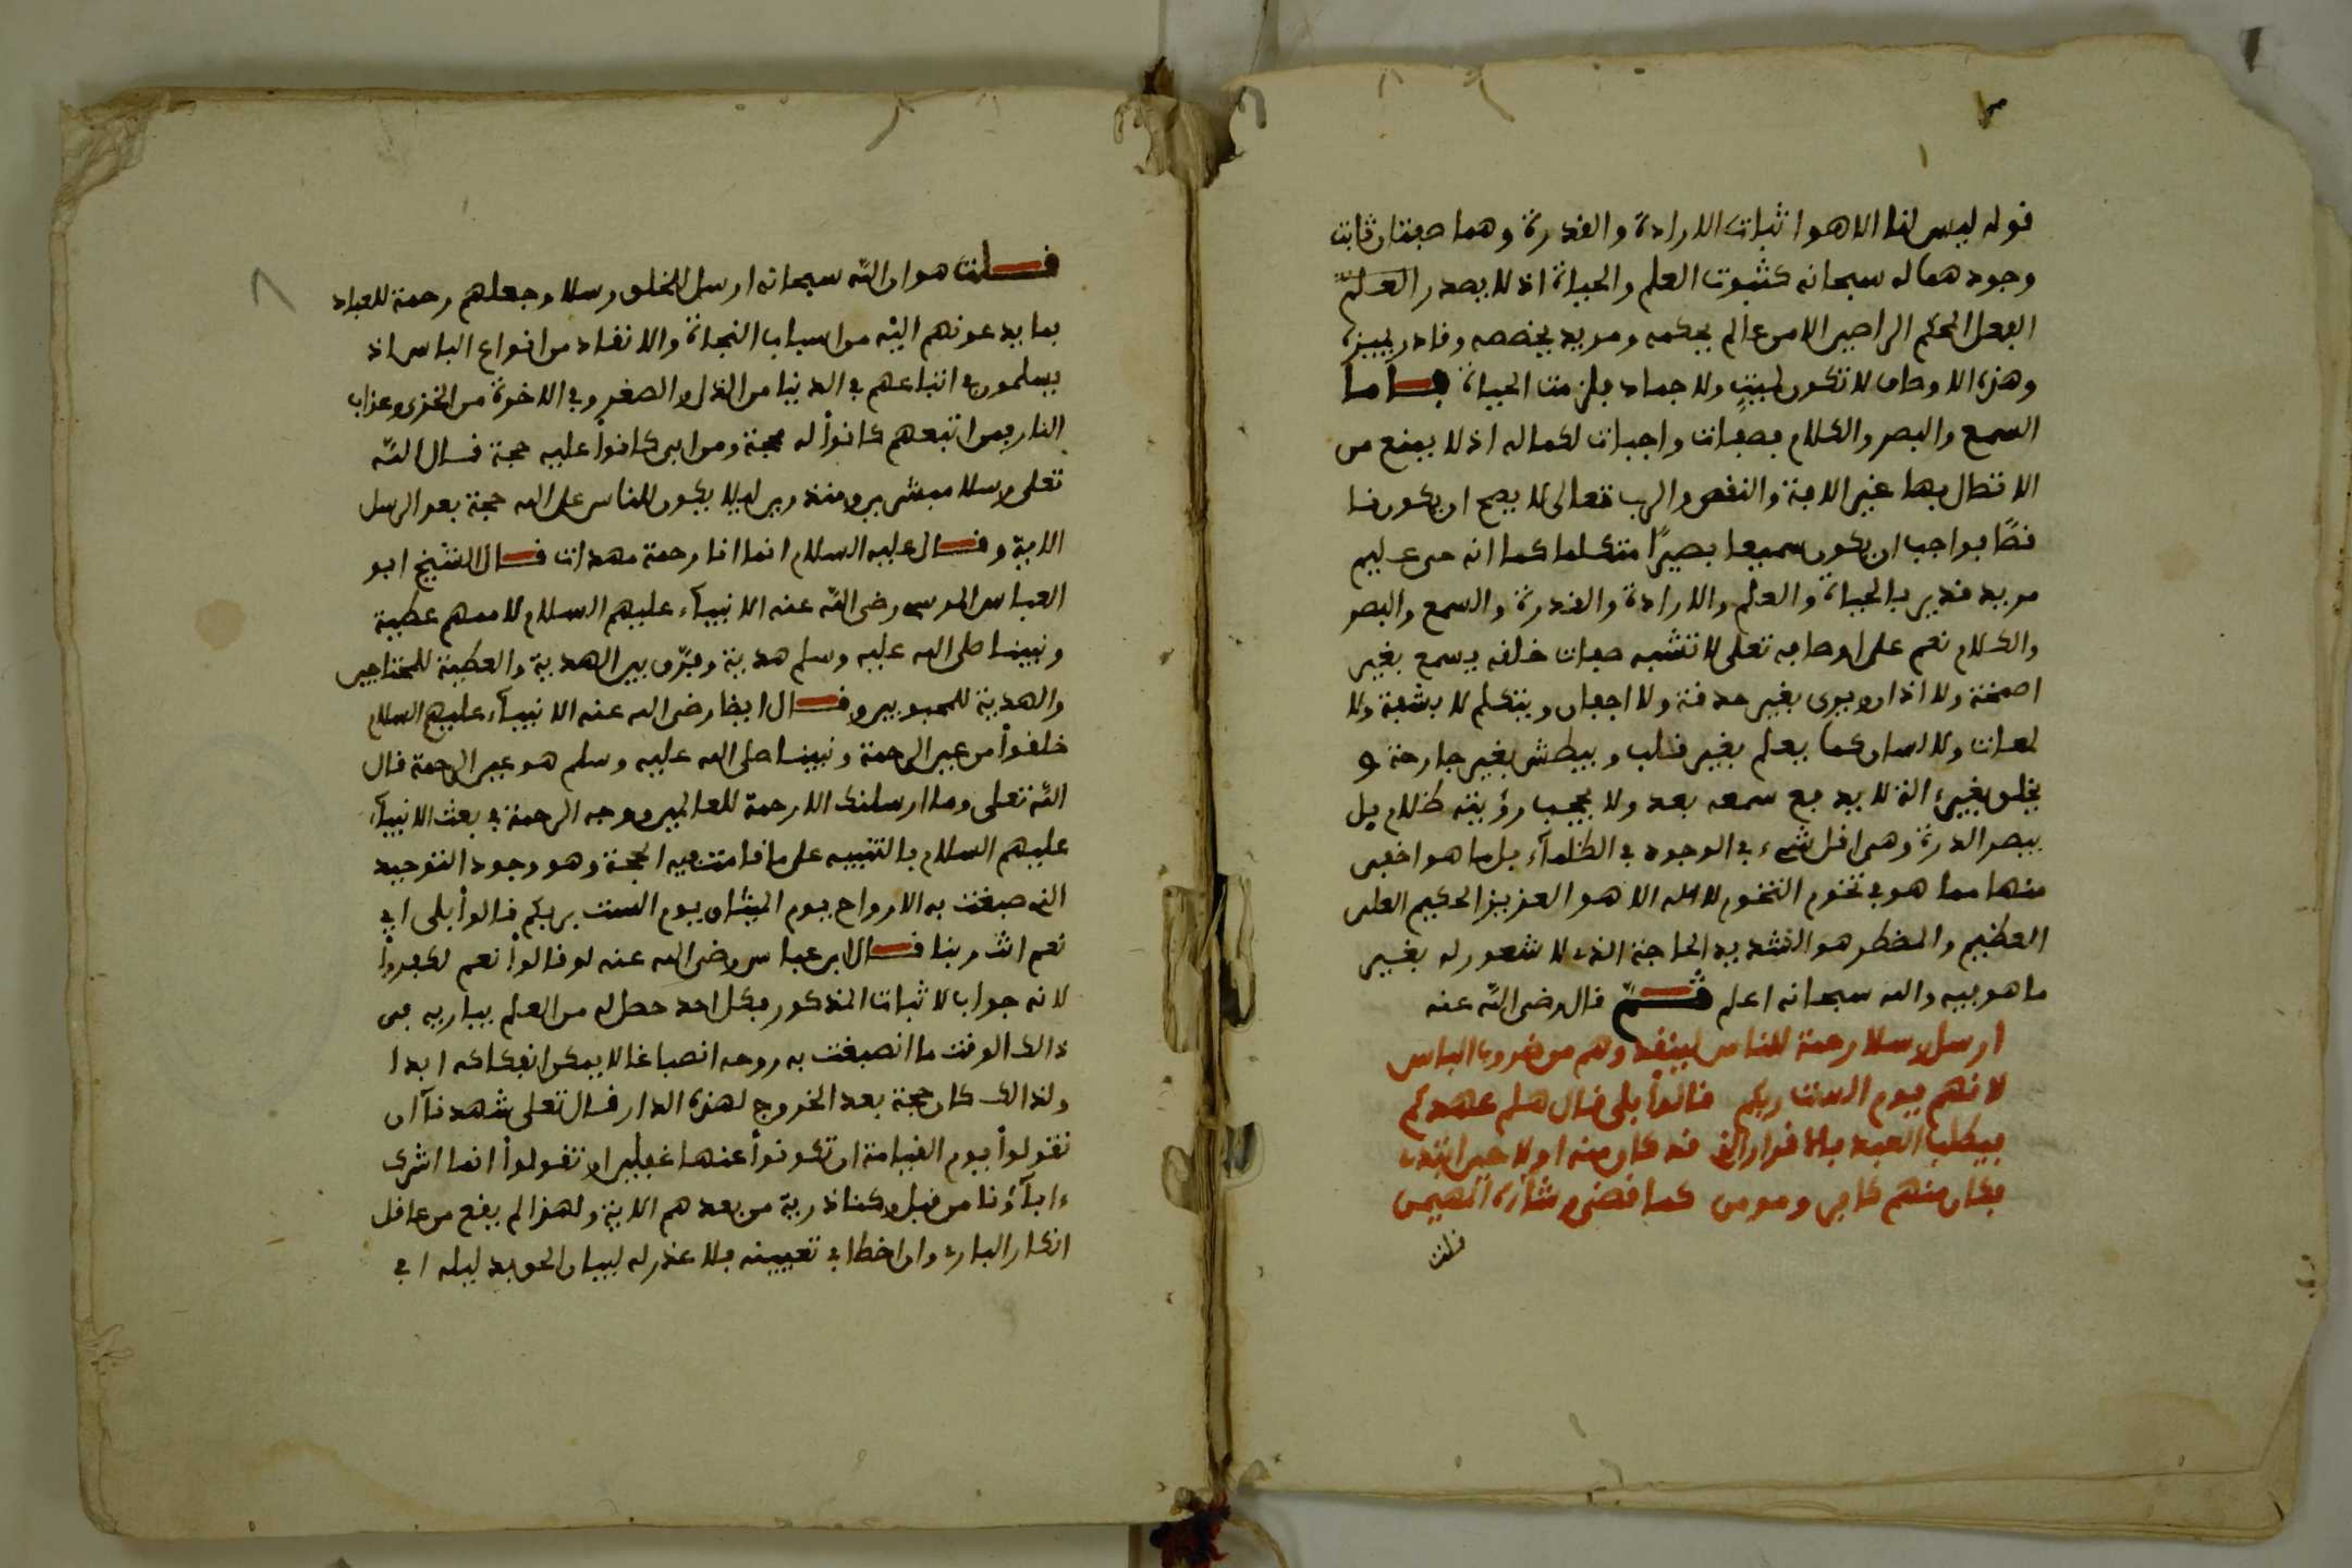 قوله ليس لنا الا هو اثبات الارادة والقدرة وهما صفتان ثابت
وجودهما له سبحانه كثبوت العلم والحياة اذ لا يصدر العلم
الفعل المحكم الراصين الا من عالم يحكمه ومريد يخصصه وقادر يبرزه
وهذه الاوصاف لا تكون لميت ولا جماد فلزمت الحياة فاما
السمع والبصر والكلام فصفات واجبات لكماله اذ لا يمنع من
الاتصال بها غير الافة والنقص والرب تعالى لا يصح ان يكون نا
قصًا فواجب ان يكون سميعا بصيرًا متكلما كما انه حي عليم
مريد قدير بالحياة والعلم والارادة والقدرة والسمع والبصر
والكلام نعم على اوصافه تعلى لا تشبه صفات خلقه يسمع بغير
اصمخة ولا اذان ويرى بغير حدقة ولا اجفان ويتكلم لا بشفة ولا
لهات ولا لسان كما يعلم بغير قلب ويبطش بغير جارحة و
يخلق بغير الة لا يدفع سمعه بعد ولا يحجب رؤيته ظلام بل
يبصر الذرة وهي اقل شيء في الوجود في الظلماء بل ما هو اخفى
منها مما هو في تخوم التخوم لا اله الا هو العزيز الحكيم العلي
العظيم والمضطر هو الشديد الحاجة الذي لا شعور له بغير
ما هو فيه والله سبحانه اعلم ثم قال رضي الله عنه
ارسل رسلا رحمة للناس لينقذوهم من ضروب الباس
لانهم يوم الست ربكم قالوا بلى قال هلم عهدكم
فيطلب العبد بالاقرار الذي قد كان منه اولا حين ابتدي
فكان منهم كافر ومومن كما قضى وشاءه المهيمن
قلت
قلت هو ان الله سبحانه ارسل للخلق رسلا وجعلهم رحمة للعباد
بما يدعونهم اليه من اسباب النجاة والانقاد من انواع الباس اذ
يسلمون في اتباعهم في الدنيا من الذل والصغر وفي الاخرة من الخزي وعذاب
النار فمن اتبعهم كانوا له محجة ومن ابى كانوا عليه حجة قال الله
تعلى رسلا مبشرين ومنذرين ليلا يكون للناس على الله حجة بعد الرسل
الاية وقال عليه السلام انما انا رحمة مهدات قال الشيخ ابو
العباس المرسي رضي الله عنه الانبياء عليهم السلام لاممهم عطية
ونبينا صلى الله عليه وسلم هدية وفرّق بين الهدية والعطية للمحتاجين
والهدية للمحبوبين وقال ايضا رضي الله عنه الانبياء عليهم السلام
خلقوا من عين الرحمة ونبينا صلى الله عليه وسلم هو عين الرحمة قال
الله تعلى وما ارسلنك الا رحمة للعالمين ووجه الرحمة في بعث الانبياء
عليهم السلام بالتنبيه على ما قامت فيه الحجة وهو وجود التوحيد
الذي صبغت به الارواح يوم الميثاق يوم الست بربكم قالوا بلى اي
نعم انت ربنا قال ابن عباس رضي الله عنه لو قالوا نعم لكفروا
لانه جواب لاثبات المذكور فكل احد حصل له من العلم بباريه في
ذالك الوقت ما انصبغت به روحه انصباغا لا يمكن انفكاكه ابدا
ولذالك كان حجة بعد الخروج لهذه الدار قال تعلى شهدنا ان
تقولوا يوم القيامة ان تكونوا عنها غفلين او تقولوا انما اشرك
ءاباؤنا من قبل وكنا ذرية من بعدهم الاية ولهذا لم يقع من عاقل
انكار البارئ وان اخطا في تعيينه فلا عذر له لبيان الحق بدليله اي